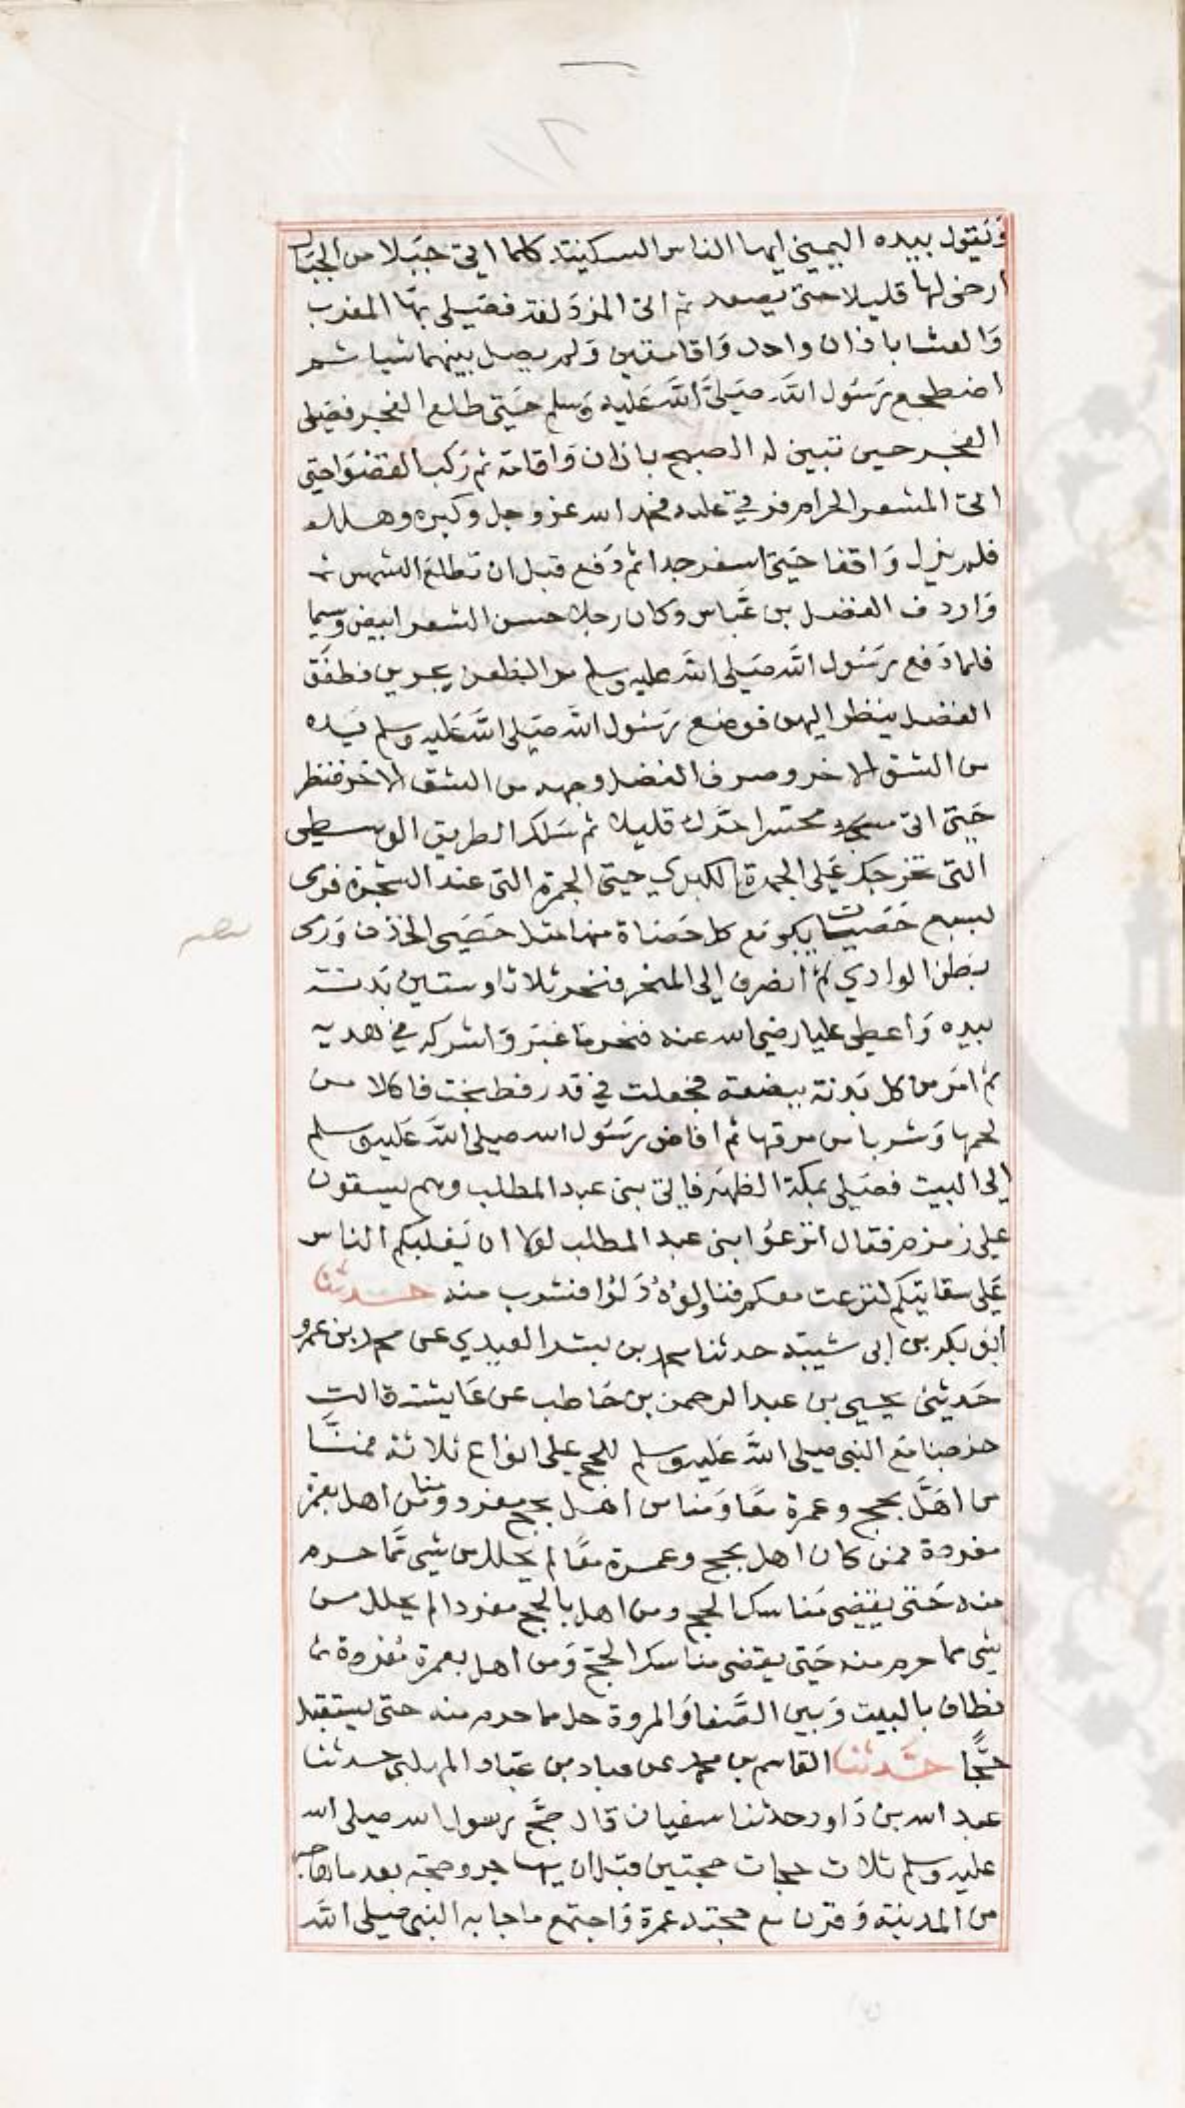 وَيَقول بيده اليمينى ايها الناس السكينة كلما اتى جَبَلا من الجبال
ارخى لها قليلا حتى يصعد ثم اتى المزدَلفة فصَلى بهَا المغرب
وَالعشا باذان واحد وَاقامتين وَلم يصل بينهما شيا ثم
اضطجع رَسُول اللَّه صَلى اللَّه عَليه وَسلم حَتى طلع الفجر فصَلى
الفجر حين تبين له الصبح باذان وَاقامة ثم رَكب القصْوَا حتى
اتى المشعر الحرام فرقي عليه فحمد الله عز وجل وكبره وهلله
فلم يزل وَاقفا حَتى اسفر جدا ثم دَفع قبل ان تطلع الشمس
وَاردف الفضل بن عَباس وكان رجلا حسن الشعر ابيض وسيما
فلما دَفع رَسُول اللَّه صَلى اللَّه عليه وسلم مر الظعن يجرين فطفَق
الفضل ينظر اليهن فوضع رَسُول اللَّه صَلى اللَّه عَليه وسلم يَده
من الشق الاخر وصرف الفضل وجهه من الشق الاخر فنظر
حَتى اتى محسرا حَرك قليلا ثم سَلك الطريق الوسطى
التى تخرجك عَلى الجمرة الكبرى حتى الجمرة التى عند الشجرة فرمى
بسبع حَصَيات يكبر مَع كل حَصَاة منها مثل حَصَى الخذف وَرمى
بَطن الوادي ثم انصرف إلى المنحر فنحر ثلاثا وستين بَدنة
بيده وَاعطى عليا رضي الله عنه فنحر ما غبَر وَاشركه في هديه
ثم امَر من كل بَدنة ببضعة فجعلت في قدر فطبخت فاكلا من
لحمها وَشربا من مرقها ثم افاض رَسُول الله صلى اللَّه عَليه وسلم
إلى البيت فصَلى بمكة الظهر فاتى بنى عبد المطلب وهم يسقون
على زمزم فقال انزعُوا بنى عبد المطلب لولا ان يَغلبكم الناس
عَلى سقايتكم لنزعت معكم فناولوُهُ دَلوُا فشرب منه حَدثنا
ابو بكر بن إبى شيبة حدثنا محمد بن بشر العبدي عن محمد بن عمرو
حَدثنى يحيى بن عبد الرحمن بن حَاطب عن عَايشة قالت
خرجنا مَع النبى صلى اللَّه عَليه وسلم للحج على انواع ثلاثة فمنَّا
من اهَلَّ بحج وعمرة معًا وَمنا من اهل بحج مفرد ومنا من اهل بعمرة
مفردة فمن كان اهل بحج وعمرة معًا لم يحلل من شى مَّا حرم
منه حَتى يقضى مَناسك الحج ومن اهل بالحج مفردا لم يحلل من
شى مما حرم منه حَتى يقضى مناسك الحج وَمن اهل بعمرة مُفردة
فطاف بالبيت وَبين الصَّفا وَالمروة حل مما حرم منه حتى يستقبل
حَجًّا حَدثنا القاسم بن محمد بن عباد بن عباد المهلبى حدثنا
عبد الله بن دَاود حدثنا سفيان قال حَجَّ رسول الله صلى الله
عليه وسلم ثلاث حجات حجتين قبل ان يهاجر وحجة بعد ما هاجر
من المدينة وَقرن مع حجته عمرة وَاجتمع ما جا به النبى صلى اللَّه